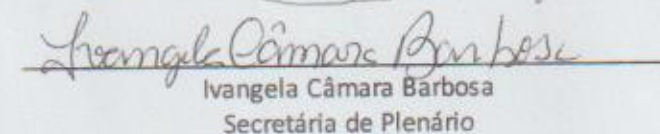 Ivangela Câmara Barbosa
Ivangela Câmara Barbosa
Secretária de Plenário